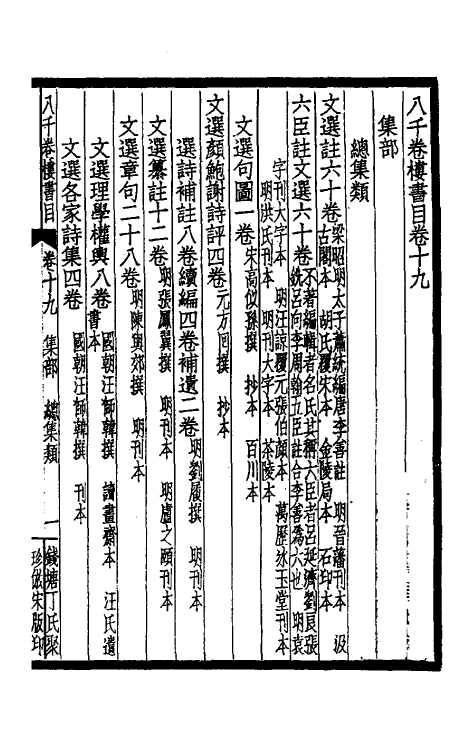 八千卷樓書目卷十九
集部
總集類
文選註六十卷梁昭明太子蕭統編唐李善註 明晉藩刊本 汲古閣本 胡氏覆宋本 金陵局本 石印本
六臣註文選六十卷不著編輯者名氏其稱六臣者呂延濟劉良張銑呂向李周翰五臣註合李善為六也 明袁
字刊大字本 明汪諒覆元張伯顏本 萬歷氷玉堂刊本 明洪氏刊本 明刊大字本 茶陵本
文選句圖一卷宋高似孫撰 抄本 百川本
文選顏鮑謝詩評四卷元方回撰 抄本
選詩補註八卷續編四卷補遺二卷明劉履撰 明刊本
文選纂註十二卷明張鳳翼撰 明刊本 明盧之頤刊本
文選章句二十八卷明陳與郊撰 明刊本
文選理學權輿八卷國朝汪師韓撰 讀畫齋本 汪氏遺書本
文選各家詩集四卷國朝汪師韓撰 刊本
八千卷樓書目 卷十九 集部 總集類 一 錢塘丁氏聚珍倣宋版印